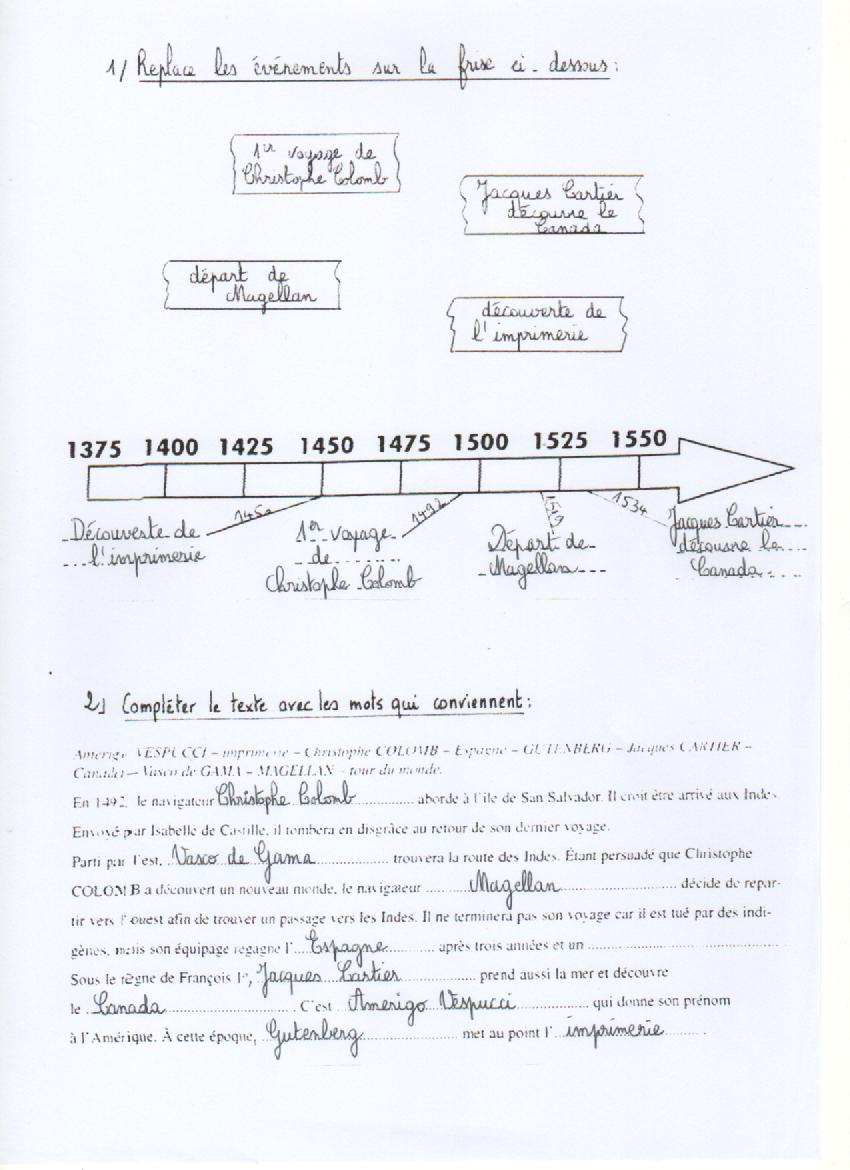 1/ Replace les événements sur la frise ci-dessous:
1er voyage de
Christophe Colomb
Jacques Cartier
découvre le
Canada
départ de
Magellan
découverte de
l'imprimerie
1375 1400 1425 1450 1475 1500 1525 1550
1450
1492
1519
1534
Découverte de
l'imprimerie
1er voyage
de
Christophe Colomb
Départ de
Magellan
Jacques Cartier
découvre le
Canada
2) Compléter le texte avec les mots qui conviennent:
Amerigo VESPUCCI – imprimerie – Christophe COLOMB – Espagne – GUTENBERG – Jacques CARTIER –
Canada – Vasco de GAMA – MAGELLAN – tour du monde.
En 1492, le navigateur Christophe Colomb .............. aborde à l'île de San Salvador. Il croit être arrivé aux Indes.
Envoyé par Isabelle de Castille, il tombera en disgrâce au retour de son dernier voyage.
Parti par l'est, Vasco de Gama .................. trouvera la route des Indes. Étant persuadé que Christophe
COLOMB a découvert un nouveau monde, le navigateur .......... Magellan ............................. décide de repar-
tir vers l'ouest afin de trouver un passage vers les Indes. Il ne terminera pas son voyage car il est tué par des indi-
gènes, mais son équipage regagne l'... Espagne ............ après trois années et un ...............................................
Sous le règne de François 1er, Jacques Cartier .................. prend aussi la mer et découvre
le .. Canada ................................ . C'est ... Amerigo Vespucci ................... qui donne son prénom
à l'Amérique. À cette époque, Gutenberg ......................... met au point l'... imprimerie .......... .